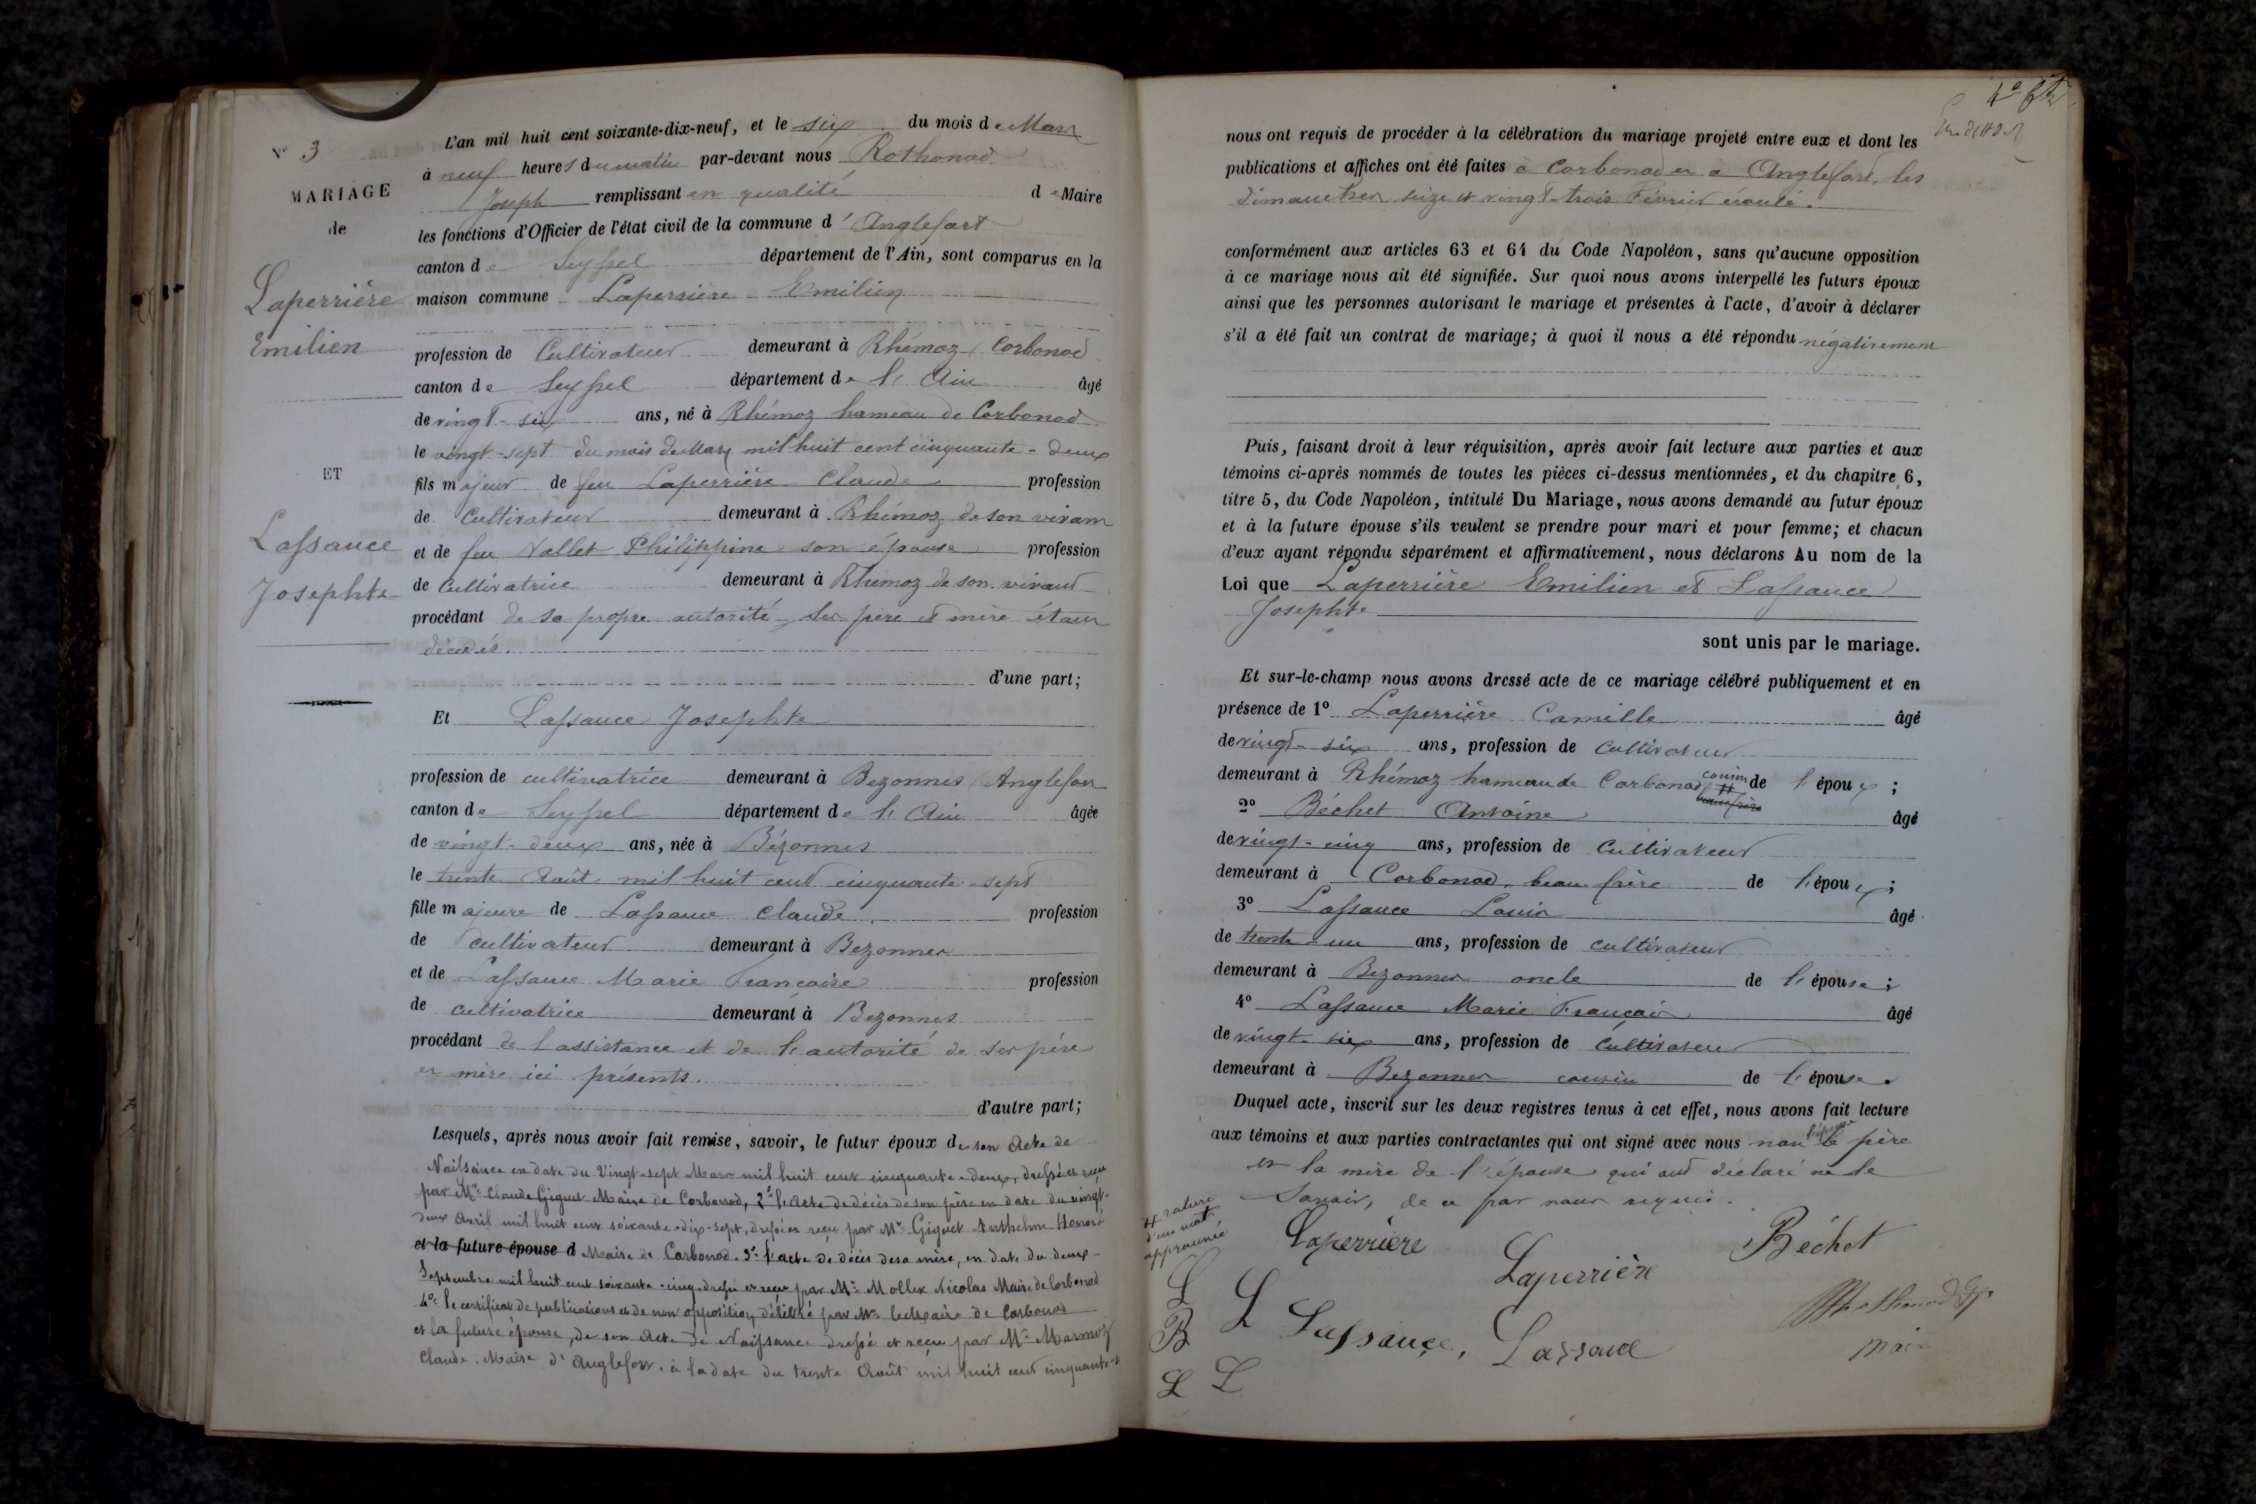 N° 3
MARIAGE
de
Laperrière
Emilien
ET
Lassauce
Josephte
L'an mil huit cent soixante-dix-neuf, et le six du mois de Mars
à neuf heures du matin par-devant nous Rothonod
Joseph remplissant en qualité de Maire
les fonctions d'Officier de l'état civil de la commune d'Anglefort
canton de Seyssel département de l'Ain, sont comparus en la
maison commune Laperrière Emilien
profession de Cultivateur demeurant à Rhémoz, Corbonod
canton de Seyssel département de l'Ain âgé
de vingt-six ans, né à Rhémoz hameau de Corbonod
le vingt-sept du mois de Mars mil huit cent cinquante-deux
fils majeur de feu Laperrière Claude profession
de Cultivateur demeurant à Rhémoz de son vivant
et de feu Vallet Philippine son épouse profession
de Cultivatrice demeurant à Rhémoz de son vivant
procédant de sa propre autorité, ses père et mère étant
décédés.
d'une part;
Et Lassauce Josephte
profession de cultivatrice demeurant à Bezonnes Anglefort
canton de Seyssel département de l'Ain âgée
de vingt-deux ans, née à Bézonnes
le trente Août mil huit cent cinquante-sept
fille majeure de Lassauce Claude profession
de cultivateur demeurant à Bezonnes
et de Lassauce Marie Françoise profession
de cultivatrice demeurant à Bezonnes
procédant de l'assistance et de l'autorité de ses père
et mère ici présents.
d'autre part;
Lesquels, après nous avoir fait remise, savoir, le futur époux de son Acte de
Naissance en date du Vingt-sept Mars mil huit cent cinquante-deux, dressé et reçu
par Mr Claude Giguet Maire de Corbonod, 2° l'Acte de décès de son père en date du vingt-
deux Avril mil huit cent soixante-dix-sept, dressé et reçu par Mr Giguet Anthelme Honoré
et la future épouse d Maire de Corbonod. 3° l'acte de décès de sa mère, en date du deux
Septembre mil huit cent soixante-cinq dressé et reçu par Mr Mollex Nicolas Maire de Corbonod
4° le certificat de publications et de non opposition, délivré par Mr le Maire de Corbonod
et la future épouse, de son Acte de Naissance dressé et reçu par Mr Marmoz
Claude. Maire d'Anglefort. à la date du trente Août mil huit cent cinquante-
nous ont requis de procéder à la célébration du mariage projeté entre eux et dont les
publications et affiches ont été faites à Corbonod et à Anglefort, les
dimanches seize et vingt-trois Février écoulé.
conformément aux articles 63 et 64 du Code Napoléon, sans qu'aucune opposition
à ce mariage nous ait été signifiée. Sur quoi nous avons interpellé les futurs époux
ainsi que les personnes autorisant le mariage et présentes à l'acte, d'avoir à déclarer
s'il a été fait un contrat de mariage; à quoi il nous a été répondu négativement
Puis, faisant droit à leur réquisition, après avoir fait lecture aux parties et aux
témoins ci-après nommés de toutes les pièces ci-dessus mentionnées, et du chapitre 6,
titre 5, du Code Napoléon, intitulé Du Mariage, nous avons demandé au futur époux
et à la future épouse s'ils veulent se prendre pour mari et pour femme; et chacun
d'eux ayant répondu séparément et affirmativement, nous déclarons Au nom de la
Loi que Laperrière Emilien et Lassauce
Josephte
sont unis par le mariage.
Et sur-le-champ nous avons dressé acte de ce mariage célébré publiquement et en
présence de 1° Laperrière Camille âgé
de vingt-six ans, profession de cultivateur
demeurant à Rhémoz hameau de Corbonod, cousin beau frère de l'époux;
2° Béchet Antoine âgé
de vingt-cinq ans, profession de Cultivateur
demeurant à Corbonod, beau frère de l'époux;
3° Lassauce Louis âgé
de trente un ans, profession de cultivateur
demeurant à Bezonnes oncle de l'épouse;
4° Lassauce Marie François âgé
de vingt-six ans, profession de Cultivateur
demeurant à Bezonnes cousin de l'épouse.
Duquel acte, inscrit sur les deux registres tenus à cet effet, nous avons fait lecture
aux témoins et aux parties contractantes qui ont signé avec nous non l'épouse le père
et la mère de l'épouse qui ont déclaré ne le
Savoir, de ce par nous requis.
rature
d'un mot
approuvée
Laperrière
Laperrière
Béchet
L
B
L
L
L
Lassauce,
Lassauce